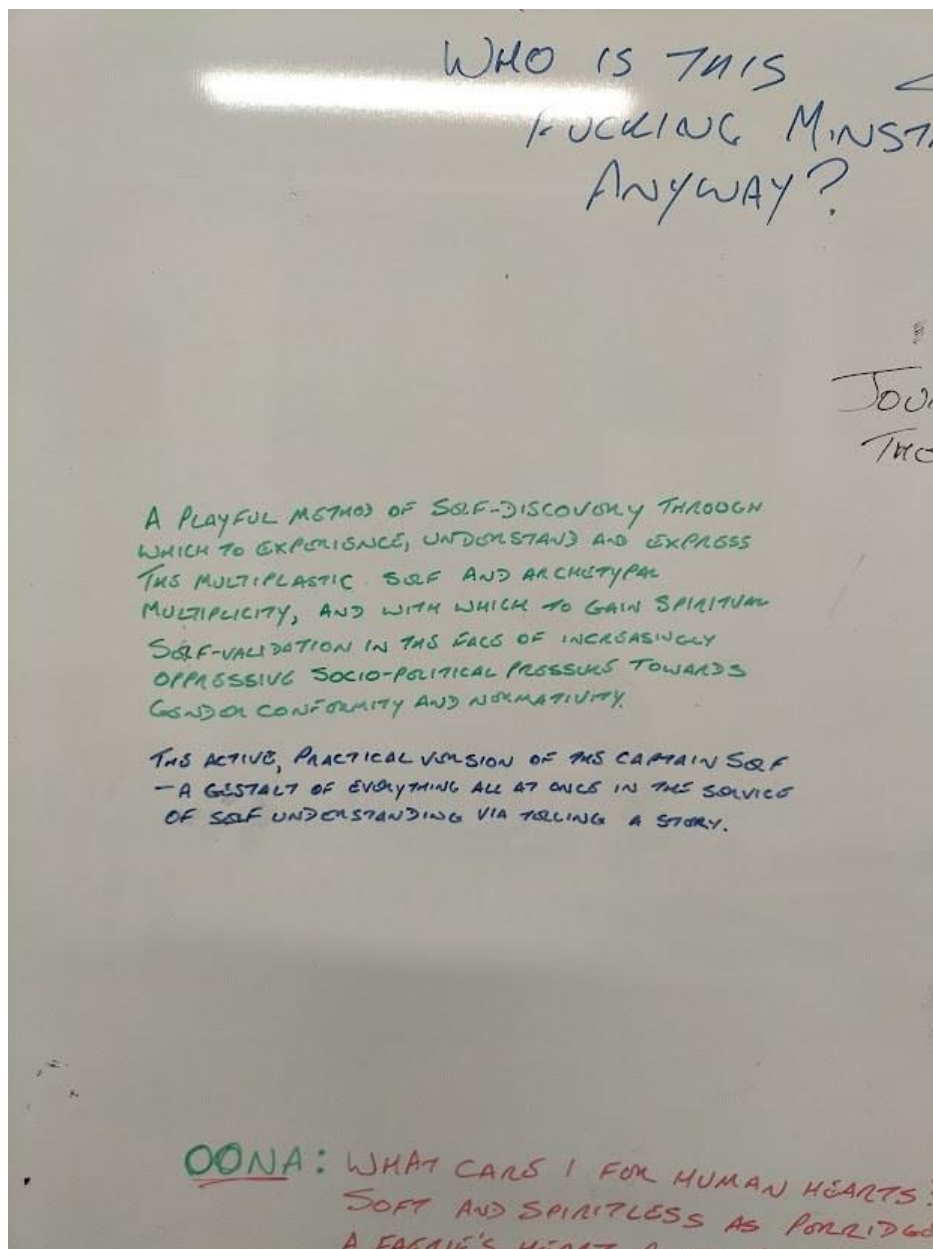 WHO IS THIS
FUCKING MINST
ANYWAY?
JOU
THO
A PLAYFUL METHOD OF SELF-DISCOVERY THROUGH
WHICH TO EXPERIENCE, UNDERSTAND AND EXPRESS
THE MULTIPLASTIC SELF AND ARCHETYPAL
MULTIPLICITY, AND WITH WHICH TO GAIN SPIRITUAL
SELF-VALIDATION IN THE FACE OF INCREASINGLY
OPPRESSIVE SOCIO-POLITICAL PRESSURE TOWARDS
GENDER CONFORMITY AND NORMATIVITY.
THE ACTIVE, PRACTICAL VERSION OF THE CAPTAIN SELF
- A GESTALT OF EVERYTHING ALL AT ONCE IN THE SERVICE
OF SELF UNDERSTANDING VIA TELLING A STORY.
OONA: WHAT CARE I FOR HUMAN HEARTS?
SOFT AND SPIRITLESS AS PORRIDGE
A FAERIE'S HEART